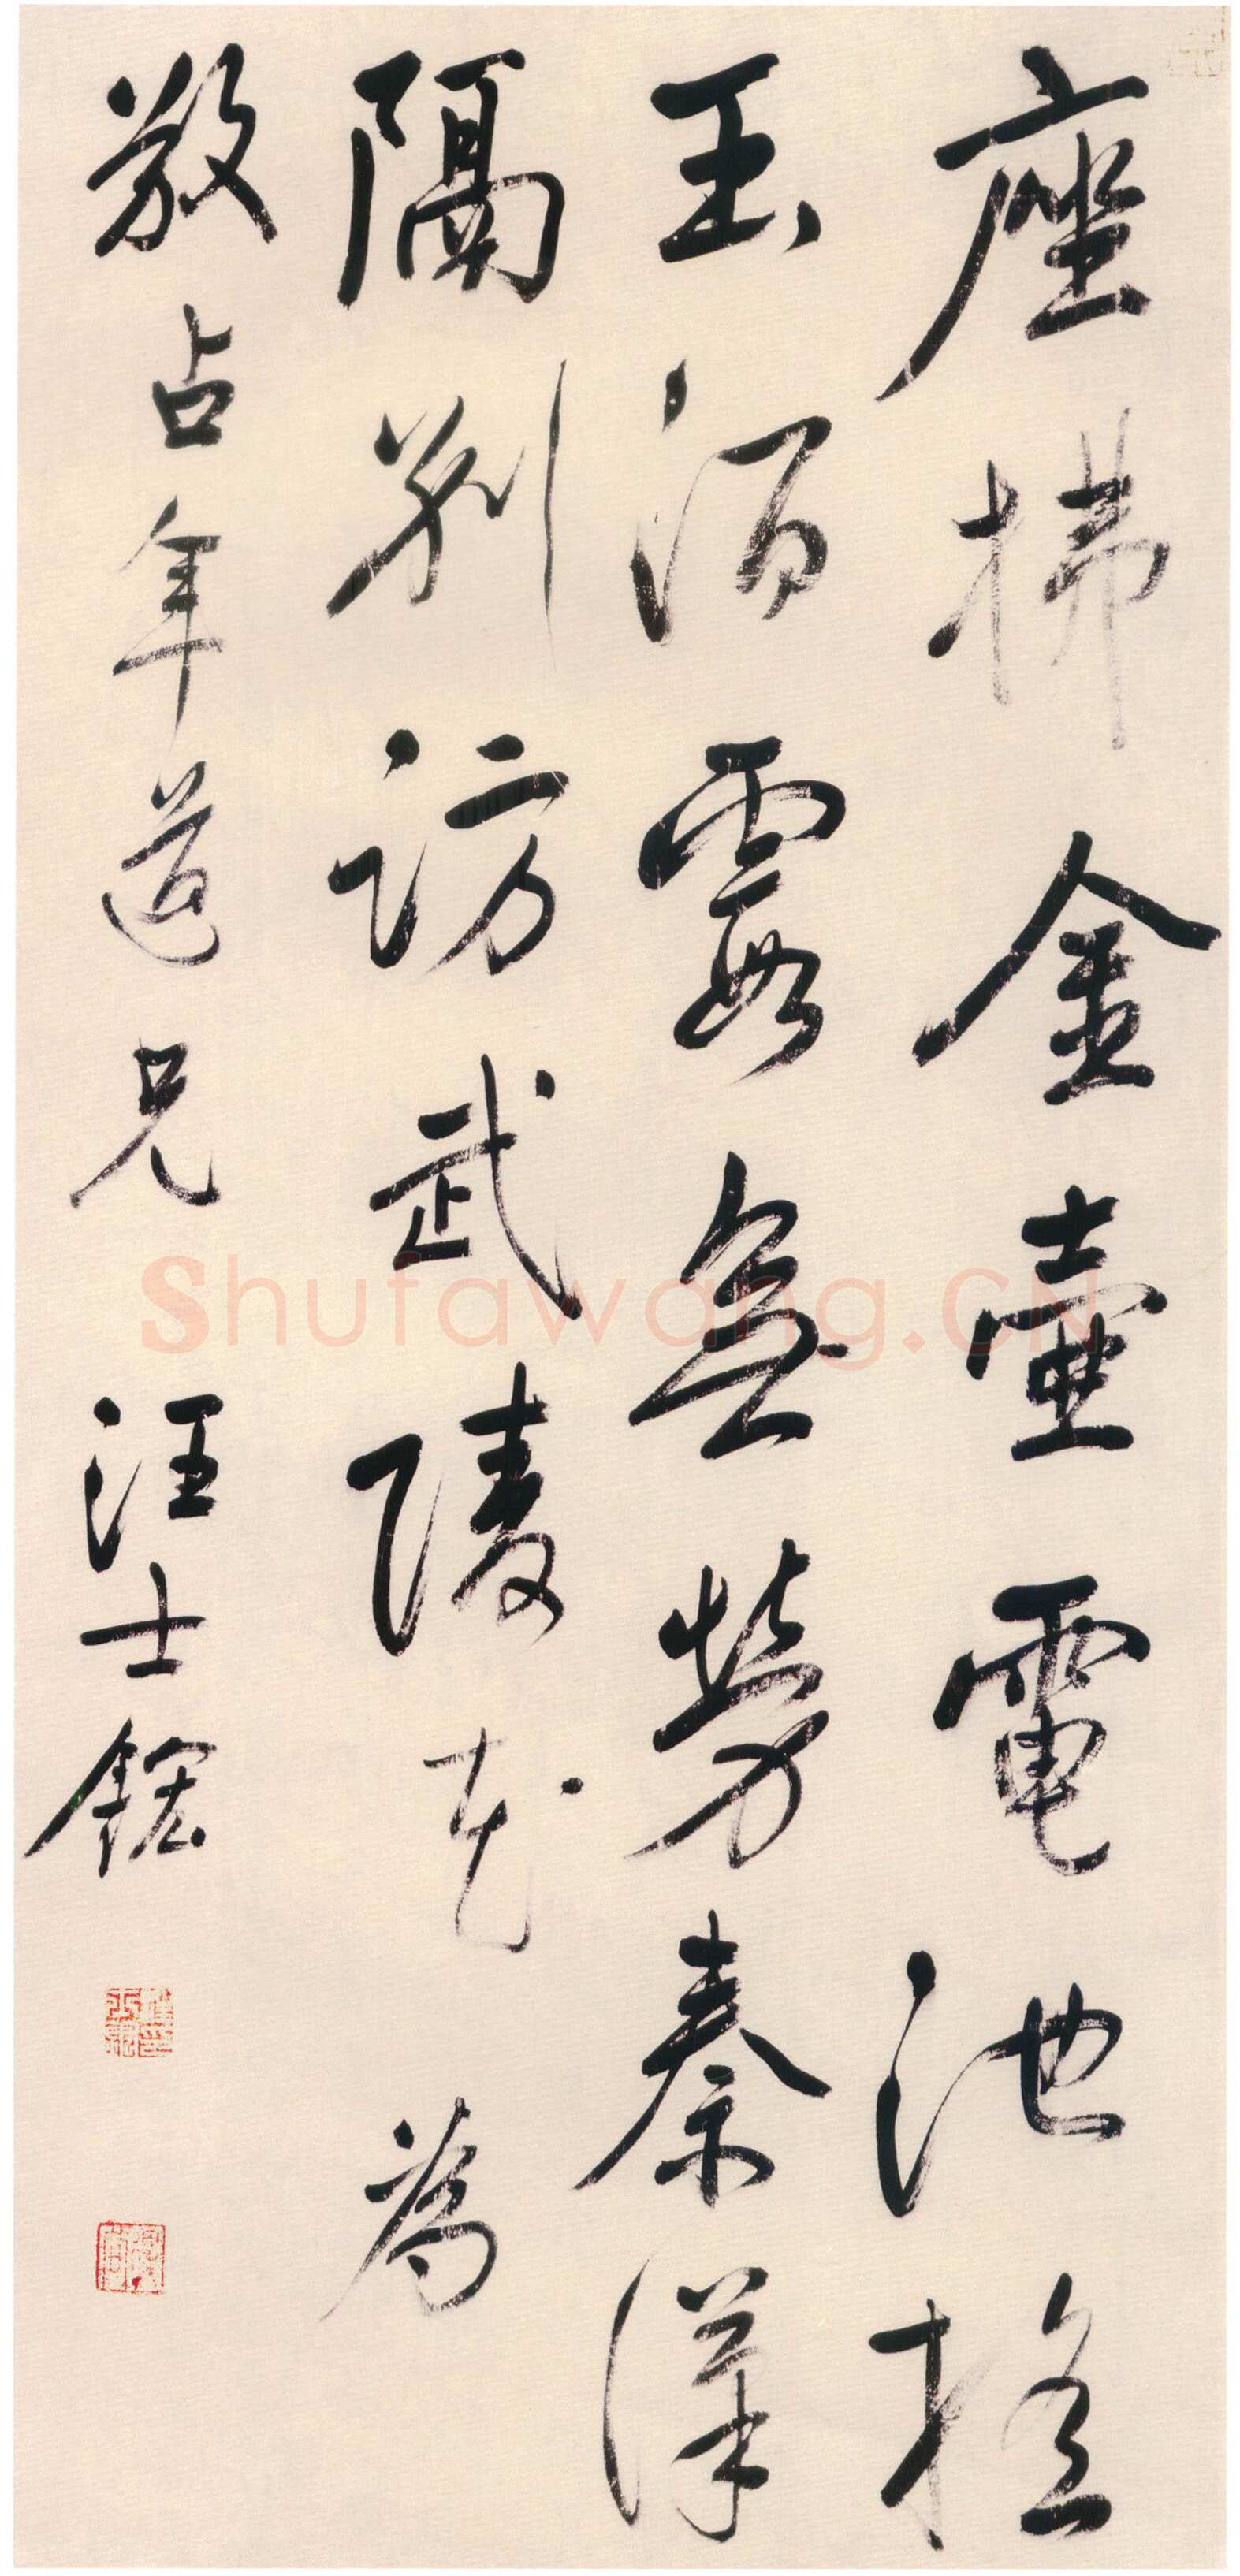 座拂金壺電池搖
玉酒霞無勞秦漢
隔別訪武陵花 為
敬占年道兄 汪士鋐
Shufawang.CN